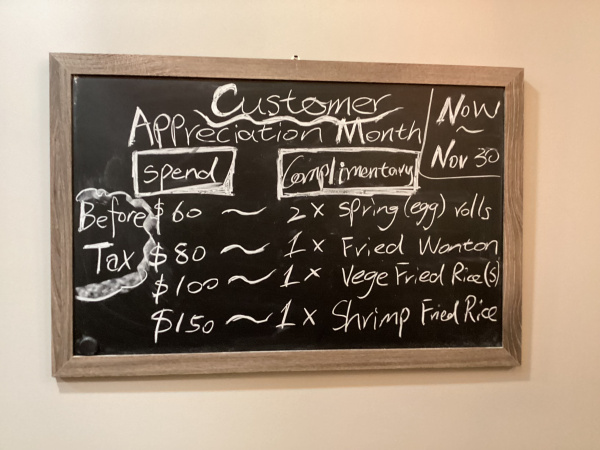 Customer
Appreciation Month
Now
~
Nov 30
Spend
Complimentary
Before
Tax
$60 ~ 2x spring (egg) rolls
$80 ~ 1x Fried Wonton
$100 ~ 1x Vege Fried Rice (s)
$150 ~ 1x Shrimp Fried Rice